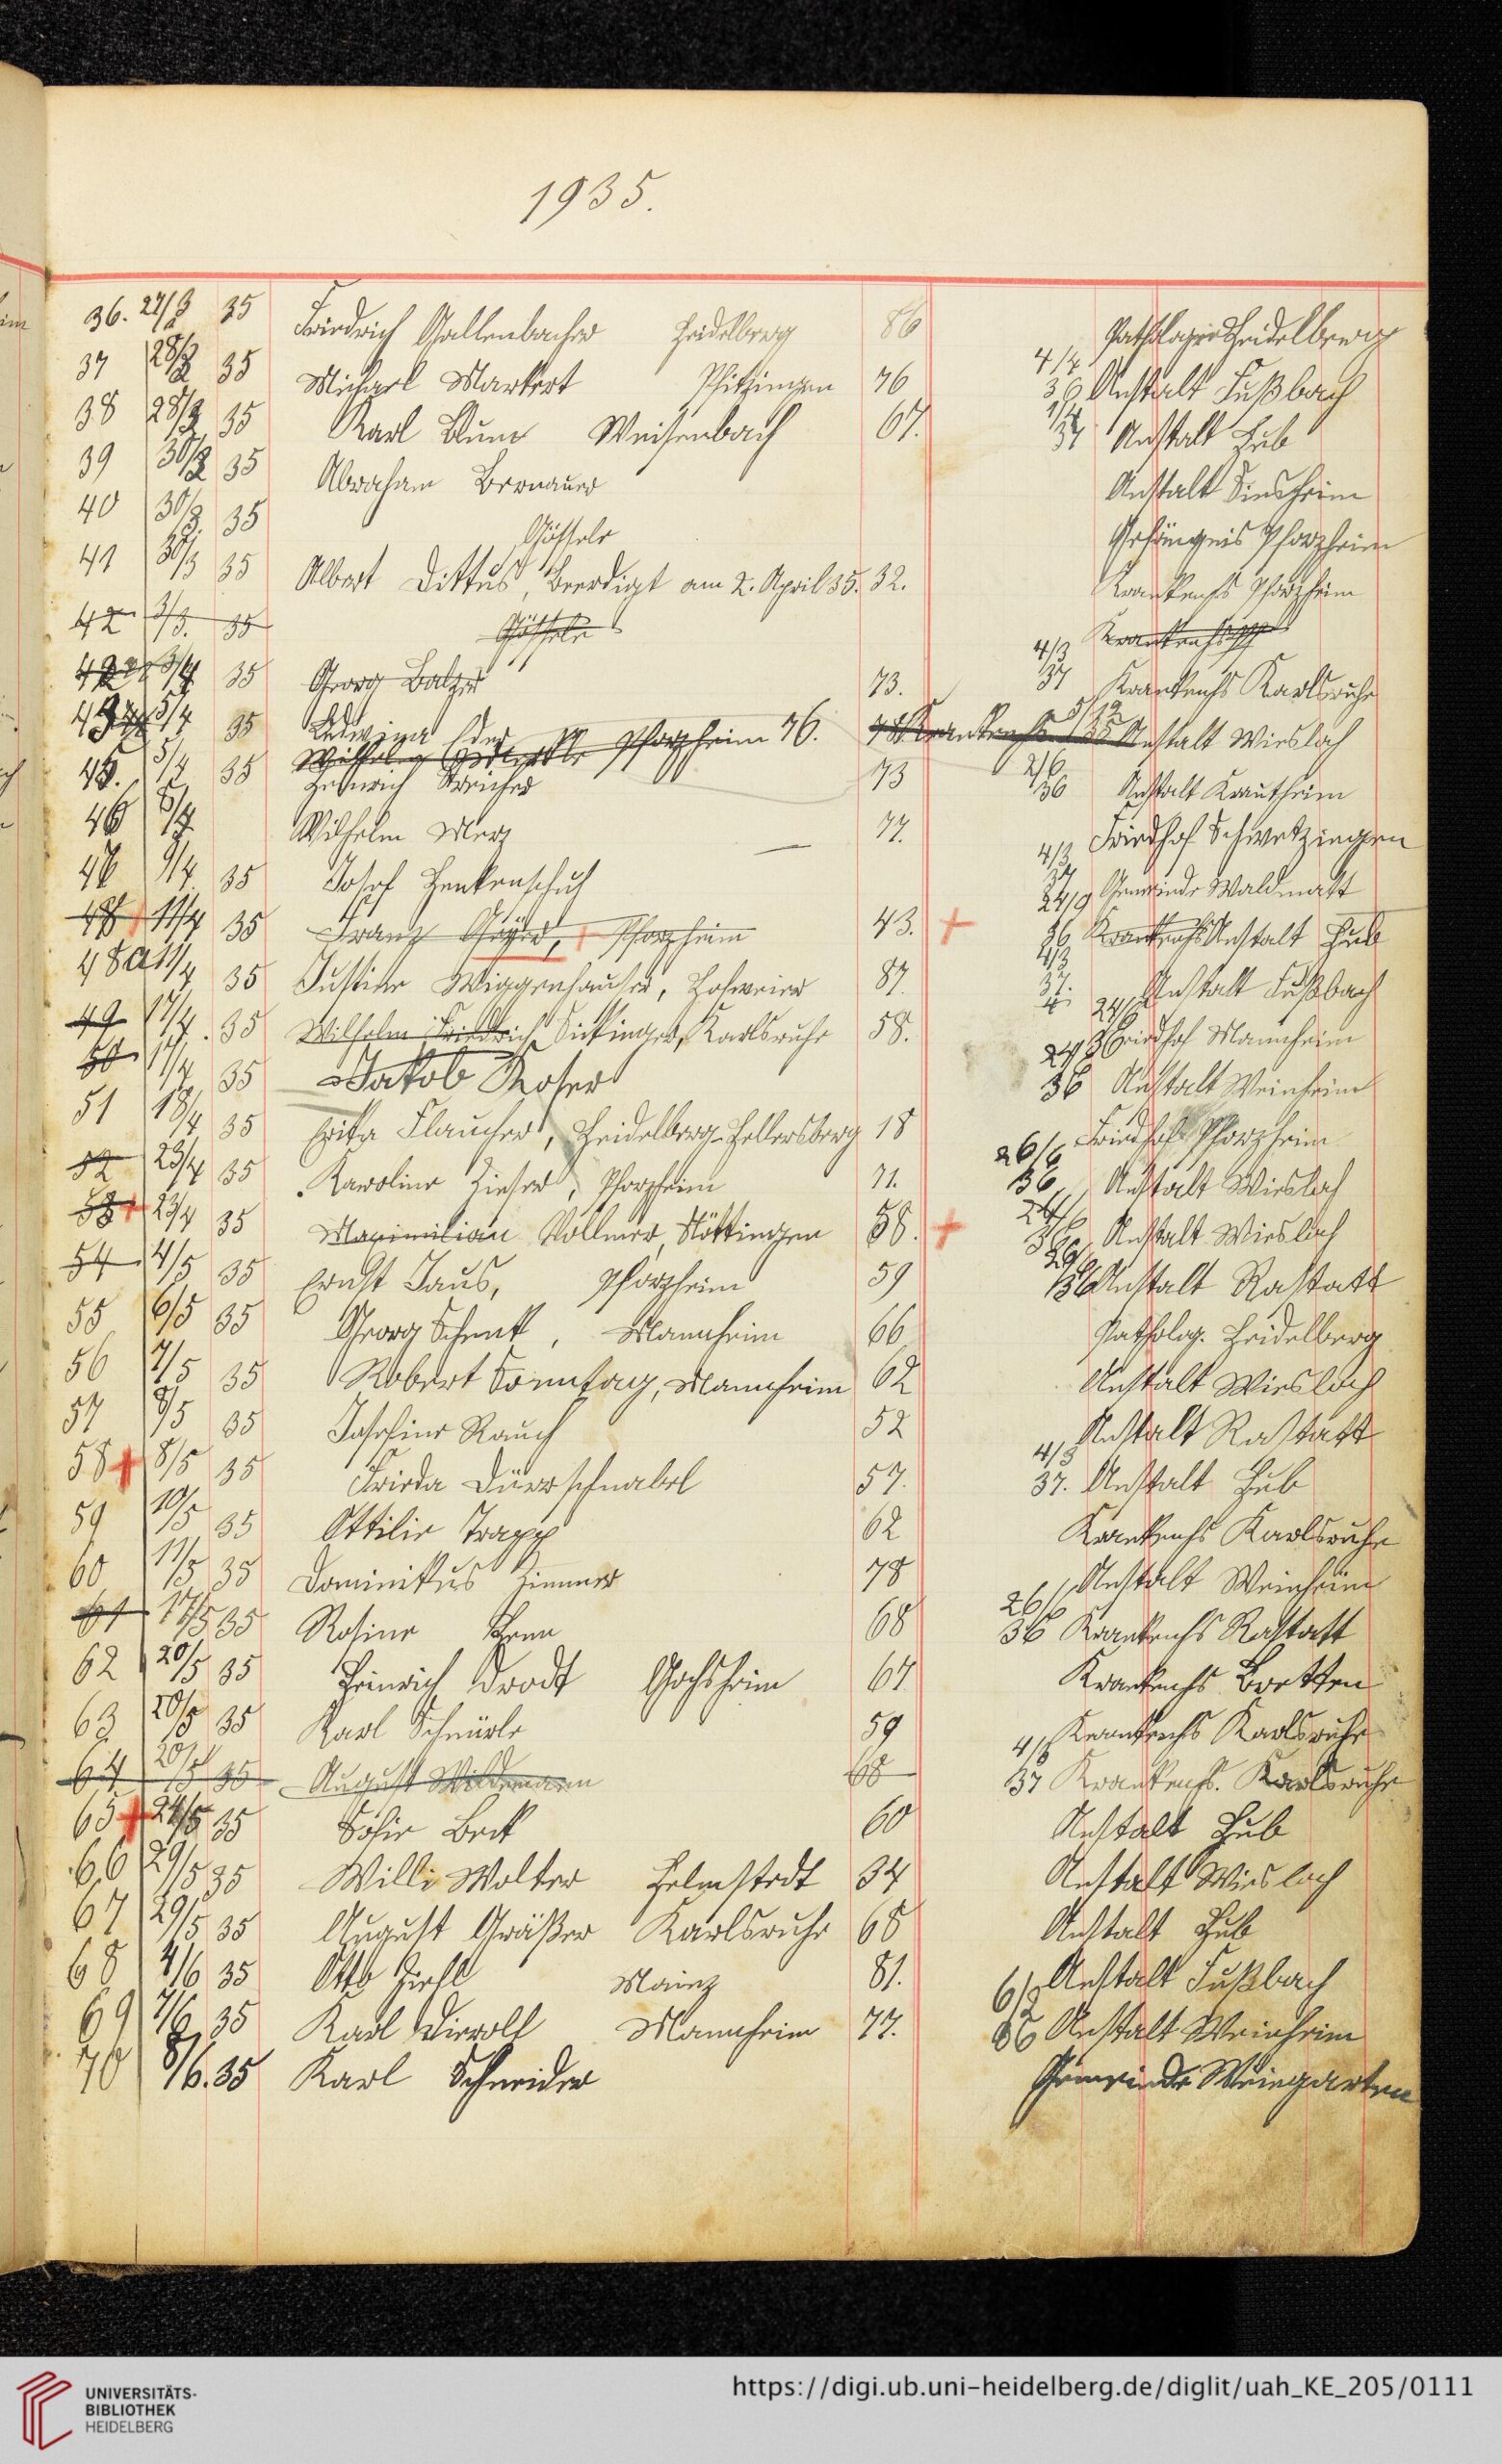 1935.
36. 27/3 35 Friedrich Gallenbacher Heidelberg 86 Patholagie Heidelberg
37 28/3 35 Michael Markert Pfitzingen 76 4/4 36 Anstalt Fußbach
38 28/3 35 Karl Blum Weisenbach 67. 1/4 37 Anstalt Hub
39 30/3 35 Abraham Bernauer Anstalt Sinsheim
40 30/3. 35 Gössele Gefängnis Pforzheim
41 30/3 35 Albert Dittus, Beerdigt am 2. April 35. 32. Krankenhs Pforzheim
42 3/3. 35 Gössele
42 3/4 35 Georg Balzer 73. 4/3 37 Krankenhs Karlsruhe
5/4 35 Ludwina Eder Pforzheim 76. 5/12 35 Anstalt Wiesloch
45. 5/4 35 Heinrich Streicher 73 2/6 36 Anstalt Krautheim
46 8/4 Wilhelm Merz 77. Friedhof Schwetzingen
9/4 35 Josef Henkenschuh 4/3 37 Gemeinde Waldmatt
48 11/4 35 Franz Geyer, Pforzheim 43. 24/9 36 Anstalt Hub
48a 11/4 35 Justine Wiggenhauser, Hofweier 87. 4/3 37. Anstalt Fußbach
49 17/4. 35 Wilhelm Friedrich Sickinger, Karlsruhe 58. 24/6 36 Friedhof Mannheim
50 17/4 35 Jakob Koser 36 Anstalt Weinheim
51 18/4 35 Erika Flaucher, Heidelberg-Hellersberg 18 Friedhof Pforzheim
52 23/4 35 Karoline Zieser, Pforzheim 71. 26/6 36 Anstalt Wiesloch
53 23/4 35 Maximilian Vollmer, Nöttingen 58. 24/6 36 Anstalt Wiesloch
54 4/5 35 Ernst Jaus, Pforzheim 59 36 Anstalt Rastatt
55 6/5 35 Georg Schenk, Mannheim 66 Patholog. Heidelberg
56 7/5 35 Robert Sonntag, Mannheim 62 Anstalt Wiesloch
57 8/5 35 Josefine Rauch 52 Anstalt Rastatt
58 8/5 35 Frieda Dürrschnabel 57. 4/3 37. Anstalt Hub
59 10/5 35 Ottilie Trapp 62 Krankenhs Karlsruhe
60 11/5 35 Dominikus Zimmer 78 Anstalt Weinheim
61 17/5 35 Rosine Henn 68 26/6 36 Krankenhs Rastatt
62 20/5 35 Heinrich Drodt Gochsheim 67 Krankenhs Bretten
63 20/5 35 Karl Schnürle 59 Krankenhs Karlsruhe
64 20/5 35 August Widemann 68 4/3 37 Krankenhs. Karlsruhe
65 24/5 35 Sofie Beck 60 Anstalt Hub
66 29/5 35 Willi Wolter Helmstedt 34 Anstalt Wiesloch
67 29/5 35 August Gräßer Karlsruhe 68 Anstalt Hub
68 4/6 35 Otto Ziehl Mainz 81. Anstalt Fußbach
69 7/6 35 Karl Dieroll Mannheim 77. 6/2 36 Anstalt Weinheim
70 8/6. 35 Karl Schneider Gemeinde Weingarten
UNIVERSITÄTS-
BIBLIOTHEK
HEIDELBERG
https://digi.ub.uni-heidelberg.de/diglit/uah_KE_205/0111